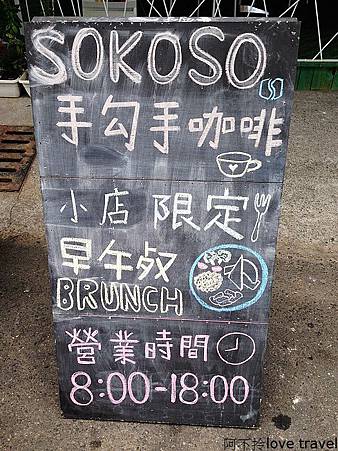 SOKOSO
手勾手咖啡
小店 限定
早午餐
BRUNCH
營業時間
8:00-18:00
阿不拎love travel